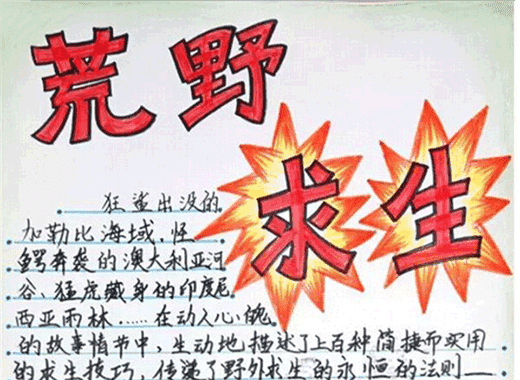 荒野
求生
狂鲨出没的
加勒比海域、怪
鳄奔袭的澳大利亚河
谷、猛虎藏身的印度尼
西亚雨林……在动人心魄
的故事情节中,生动地描述了上百种简捷而实用
的求生技巧,传递了野外求生的永恒的法则——